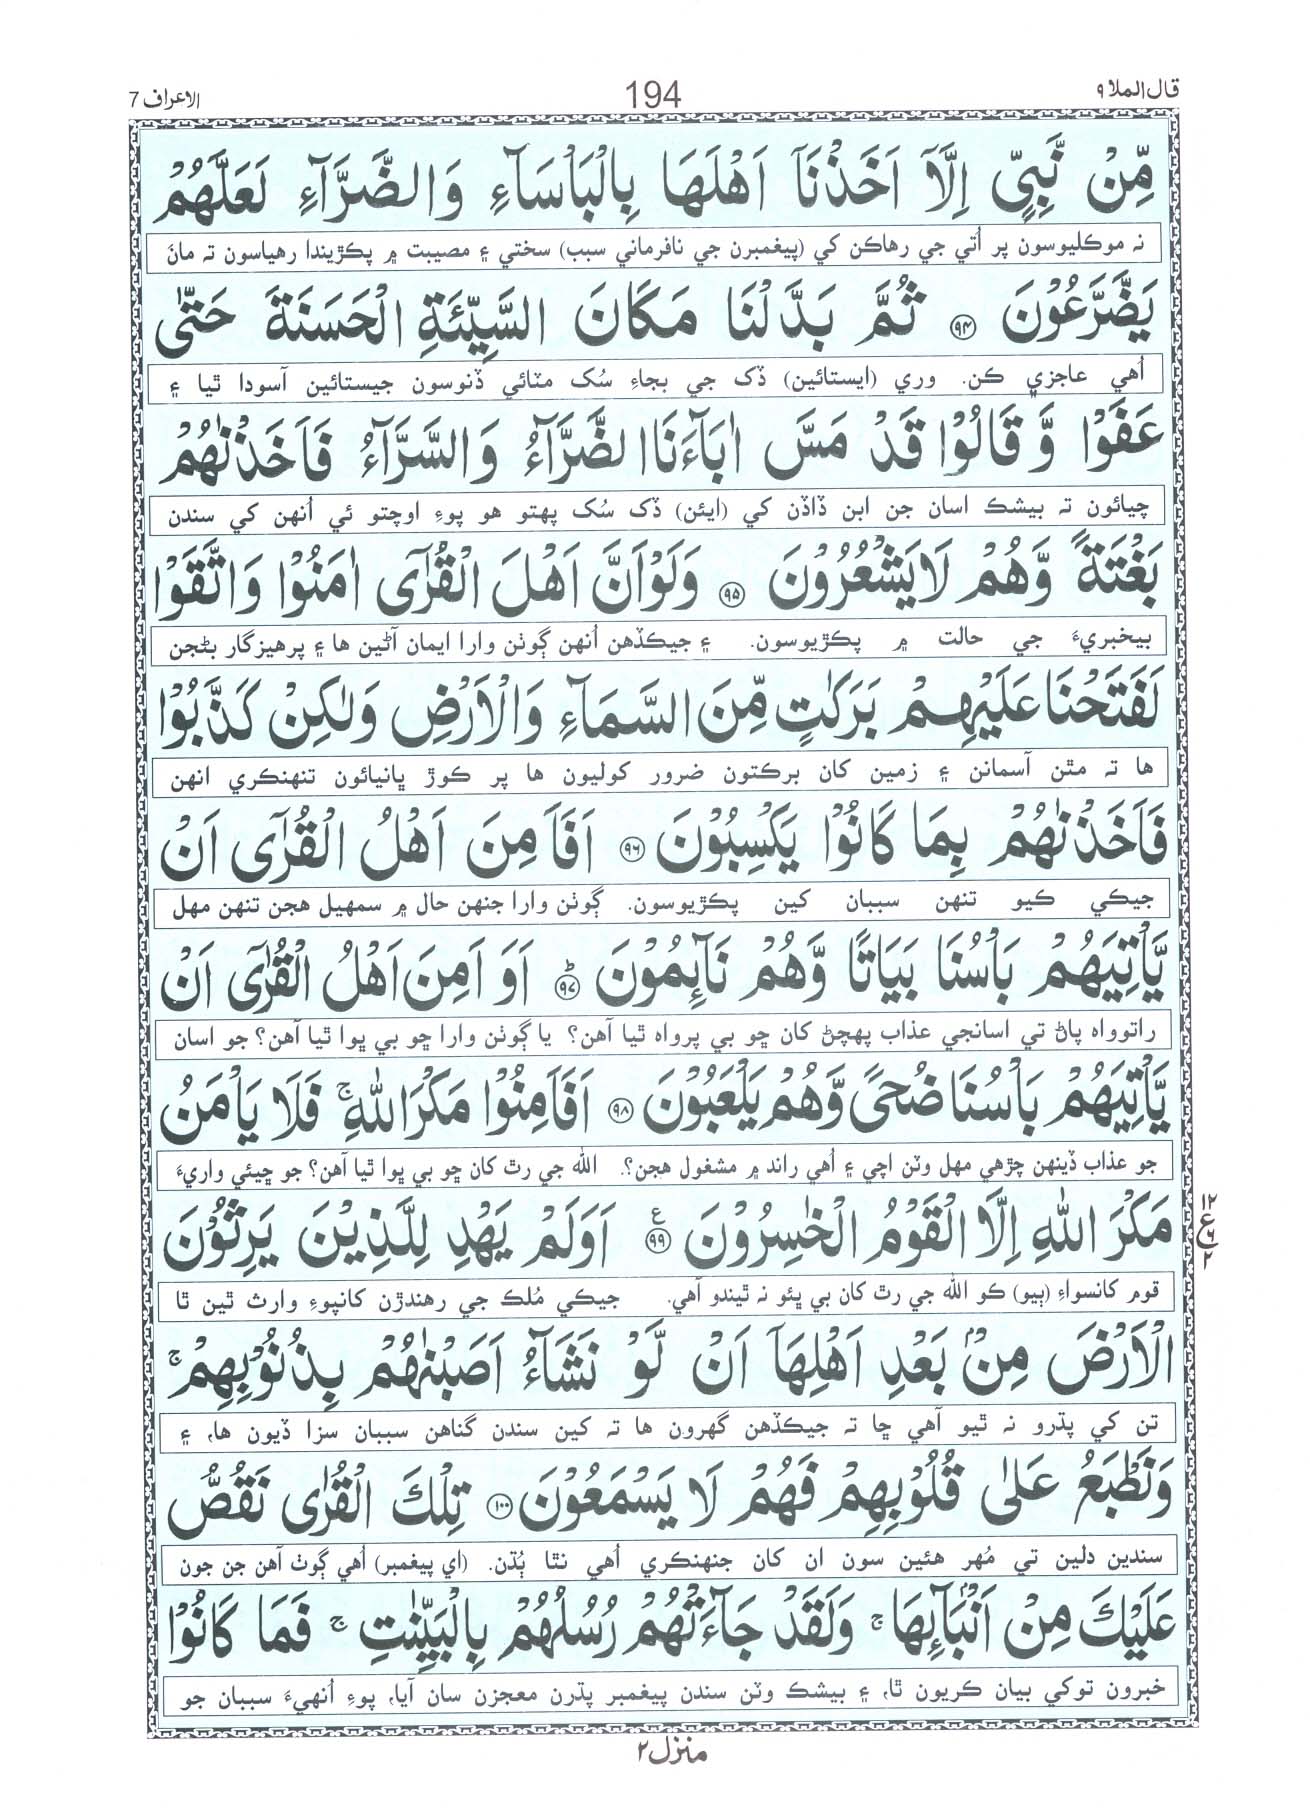 قال الملا ٩
194
الاعراف 7
مِّنْ نَّبِيٍّ اِلَّاۤ اَخَذْنَاۤ اَهْلَهَا بِالْبَاْسَآءِ وَالضَّرَّآءِ لَعَلَّهُمْ
نہ موڪليوسون پر اُتي جي رهاڪن کي (پيغمبرن جي نافرماني سبب) سختي ۽ مصيبت ۾ پڪڙيندا رهياسون تہ مانَ
يَضَّرَّعُوْنَ ۝٩٤ ثُمَّ بَدَّلْنَا مَكَانَ السَّيِّئَةِ الْحَسَنَةَ حَتّٰى
اُهي عاجزي ڪن. وري (ايستائين) ڏک جي بجاءِ سُک مٽائي ڏنوسون جيستائين آسودا ٿيا ۽
عَفَوْا وَّ قَالُوْا قَدْ مَسَّ اٰبَآءَنَا الضَّرَّآءُ وَ السَّرَّآءُ فَاَخَذْنٰهُمْ
چيائون تہ بيشڪ اسان جن ابن ڏاڏن کي (ايئن) ڏک سُک پهتو هو پوءِ اوچتو ئي اُنهن کي سندن
بَغْتَةً وَّهُمْ لَا يَشْعُرُوْنَ ۝٩٥ وَلَوْ اَنَّ اَهْلَ الْقُرٰۤى اٰمَنُوْا وَاتَّقَوْا
بيخبريءَ جي حالت ۾ پڪڙيوسون. ۽ جيڪڏهن اُنهن ڳوٺن وارا ايمان آڻين ها ۽ پرهيزگار بڻجن
لَفَتَحْنَا عَلَيْهِمْ بَرَكٰتٍ مِّنَ السَّمَآءِ وَالْاَرْضِ وَلٰكِنْ كَذَّبُوْا
ها تہ مٿن آسمانن ۽ زمين کان برڪتون ضرور کوليون ها پر ڪوڙ ڀانيائون تنهنڪري انهن
فَاَخَذْنٰهُمْ بِمَا كَانُوْا يَكْسِبُوْنَ ۝٩٦ اَفَاَمِنَ اَهْلُ الْقُرٰۤى اَنْ
جيڪي ڪيو تنهن سببان کين پڪڙيوسون. ڳوٺن وارا جنهن حال ۾ سمهيل هجن تنهن مهل
يَّاْتِيَهُمْ بَاْسُنَا بَيَاتًا وَّهُمْ نَآئِمُوْنَ ۝٩٧ؕ اَوَ اَمِنَ اَهْلُ الْقُرٰۤى اَنْ
راتوواہ پاڻ تي اسانجي عذاب پهچڻ کان ڇو بي پرواہ ٿيا آهن؟ يا ڳوٺن وارا ڇو بي ڀوا ٿيا آهن؟ جو اسان
يَّاْتِيَهُمْ بَاْسُنَا ضُحًى وَّهُمْ يَلْعَبُوْنَ ۝٩٨ اَفَاَمِنُوْا مَكْرَ اللّٰهِ ۚ فَلَا يَاْمَنُ
جو عذاب ڏينهن چڙهي مهل وٽن اچي ۽ اُهي راند ۾ مشغول هجن؟. الله جي رٿ کان ڇو بي ڀوا ٿيا آهن؟ جو ڇيئي واريءَ
مَكْرَ اللّٰهِ اِلَّا الْقَوْمُ الْخٰسِرُوْنَ ۝٩٩ ع اَوَلَمْ يَهْدِ لِلَّذِيْنَ يَرِثُوْنَ
قوم کانسواءِ (ٻيو) ڪو الله جي رٿ کان بي ڀئو نہ ٿيندو آهي. جيڪي مُلڪ جي رهندڙن کانپوءِ وارث ٿين ٿا
١٢
ع ٦
٢
الْاَرْضَ مِنْۢ بَعْدِ اَهْلِهَاۤ اَنْ لَّوْ نَشَآءُ اَصَبْنٰهُمْ بِذُنُوْبِهِمْ ۚ
تن کي پڌرو نہ ٿيو آهي ڇا تہ جيڪڏهن گهرون ها تہ کين سندن گناهن سببان سزا ڏيون ها، ۽
وَنَطْبَعُ عَلٰى قُلُوْبِهِمْ فَهُمْ لَا يَسْمَعُوْنَ ۝١٠٠ تِلْكَ الْقُرٰى نَقُصُّ
سندين دلين تي مُهر هڻين سون ان کان جنهنڪري اُهي نٿا ٻُڌن. (اي پيغمبر) اُهي ڳوٺ آهن جن جون
عَلَيْكَ مِنْ اَنْۢبَآئِهَا ۚ وَلَقَدْ جَآءَتْهُمْ رُسُلُهُمْ بِالْبَيِّنٰتِ ۚ فَمَا كَانُوْا
خبرون توکي بيان ڪريون ٿا، ۽ بيشڪ وٽن سندن پيغمبر پڌرن معجزن سان آيا، پوءِ اُنهيءَ سببان جو
منزل ٢